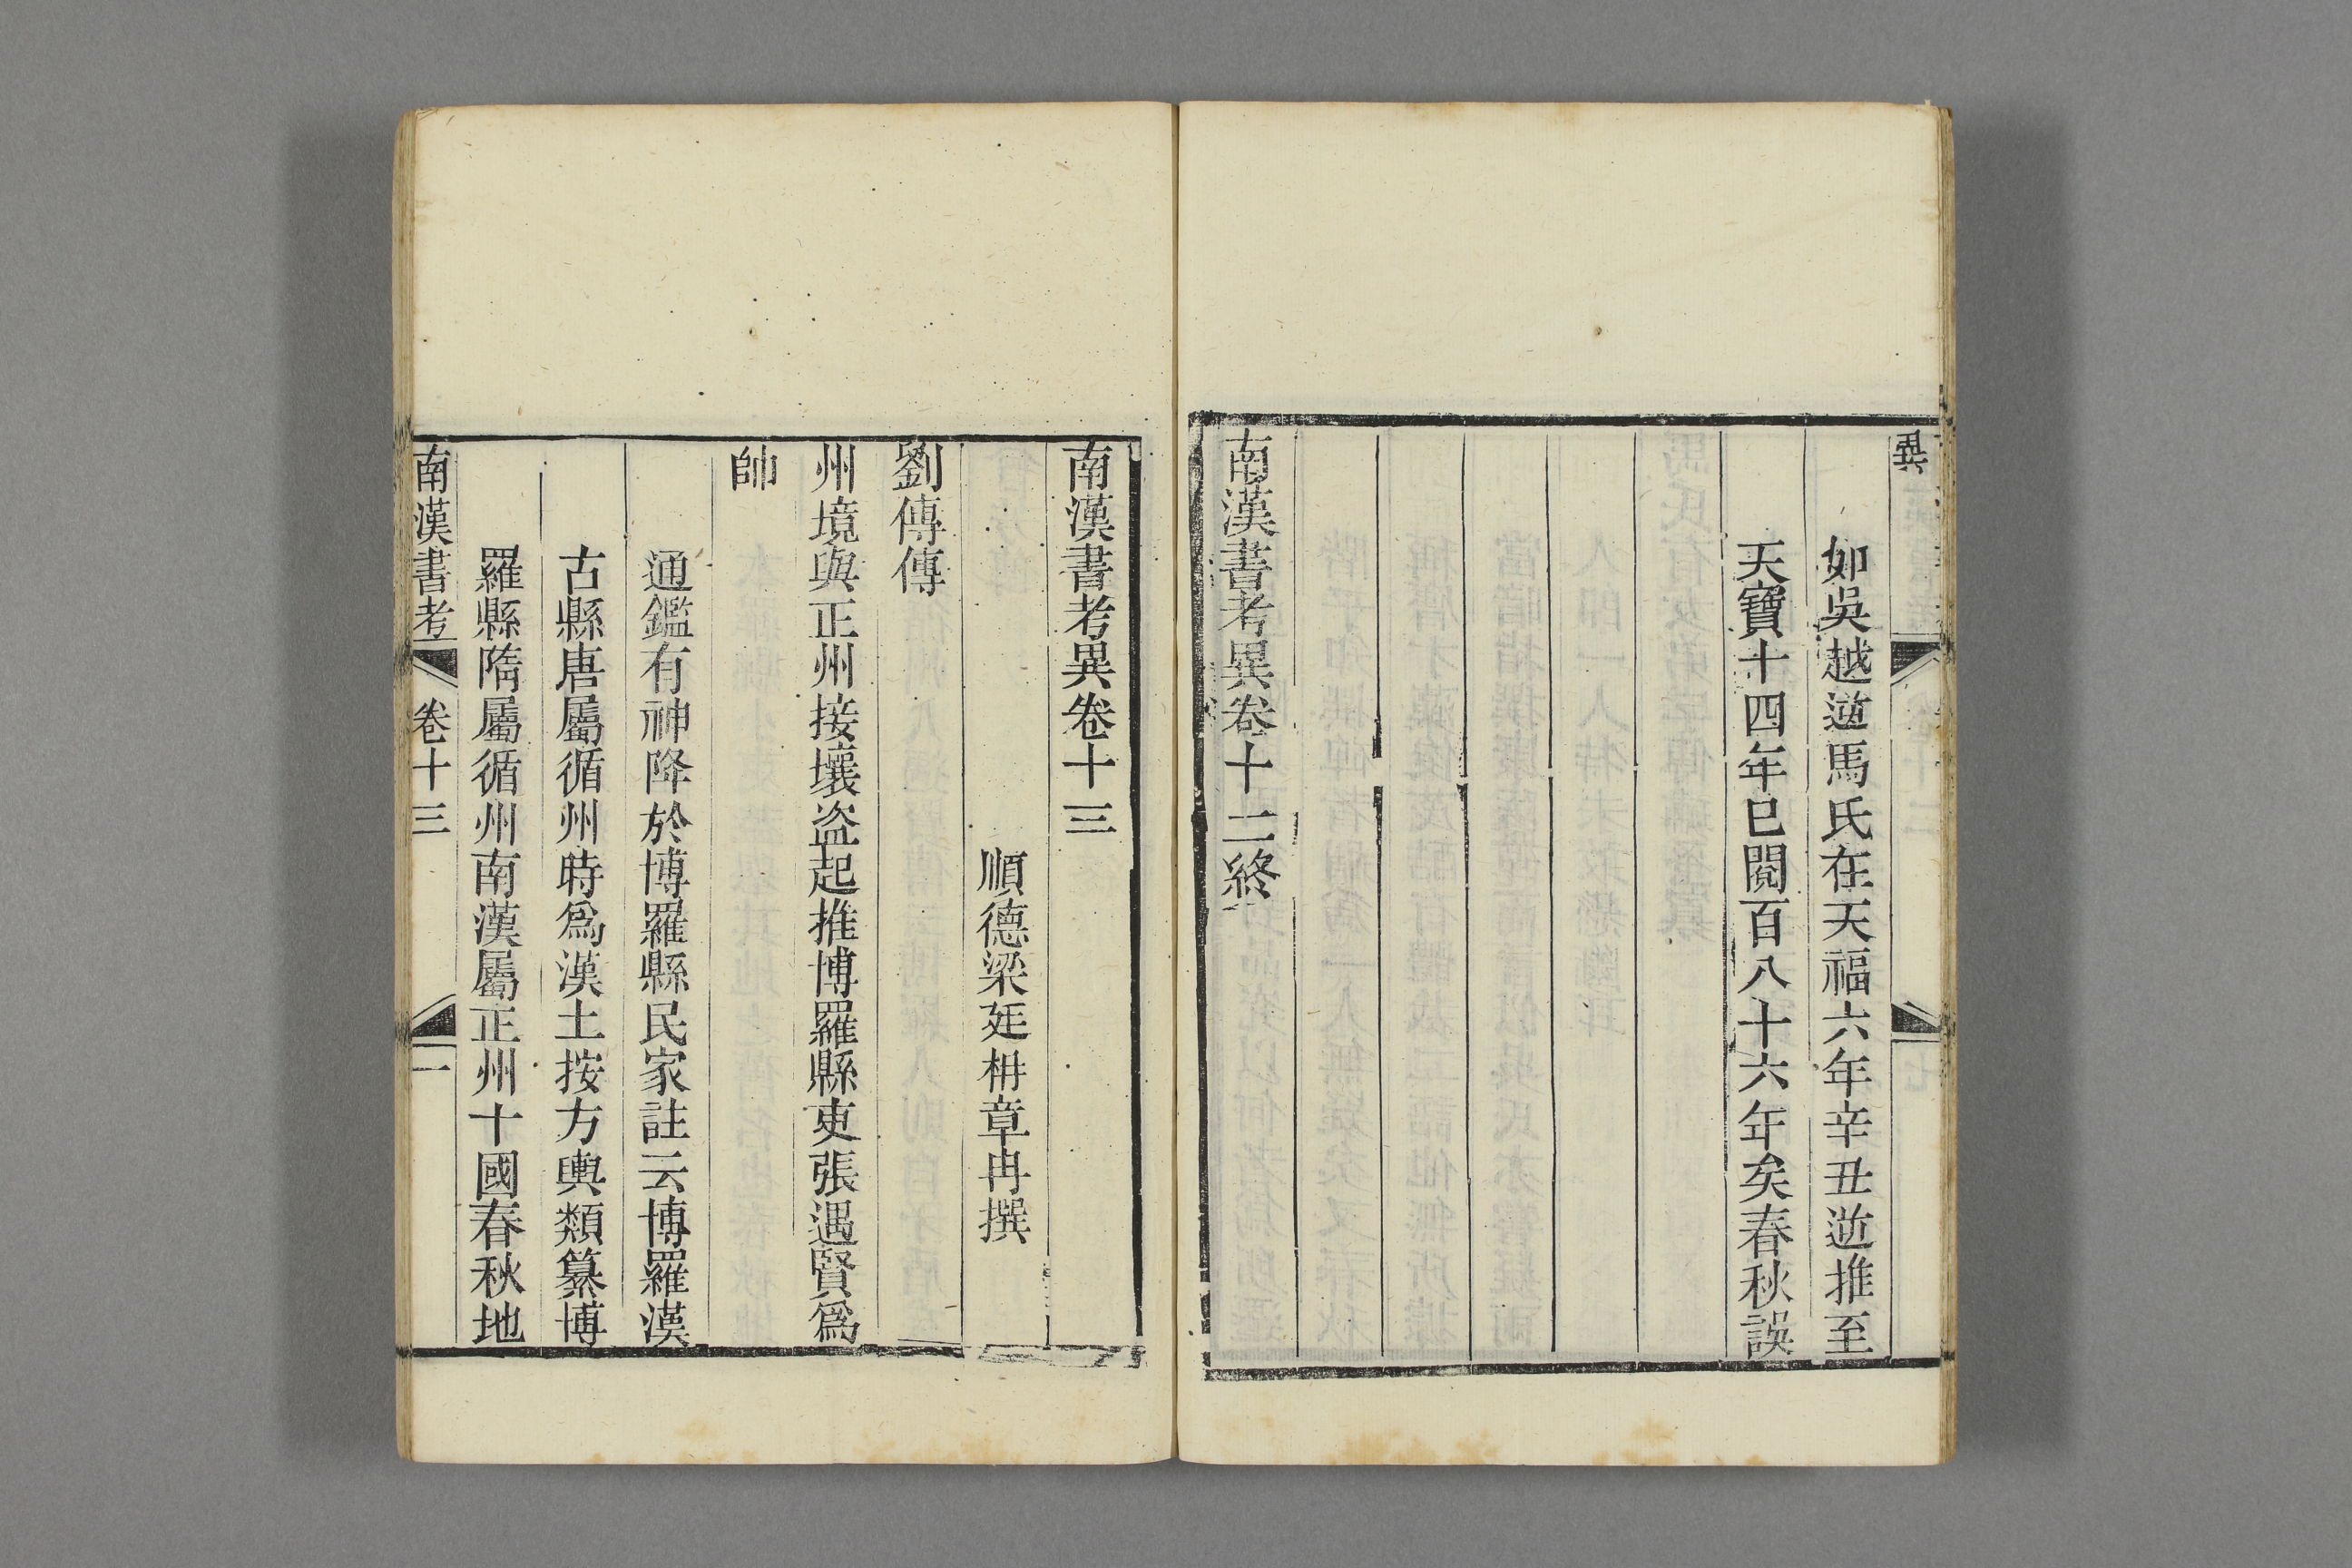 異
如吳越逆馬氏在天福六年辛丑逆推至
天寶十四年已閱百八十六年矣春秋誤
南漢書考異卷十二終
南漢書考異卷十三
順德梁廷枏章冉撰
劉傳傳
州境與正州接壤盜起推博羅縣吏張遇賢爲
帥
通鑑有神降於博羅縣民家註云博羅漢
古縣唐屬循州時爲漢土按方輿類纂博
羅縣隋屬循州南漢屬正州十國春秋地
南漢書考
卷十三
一